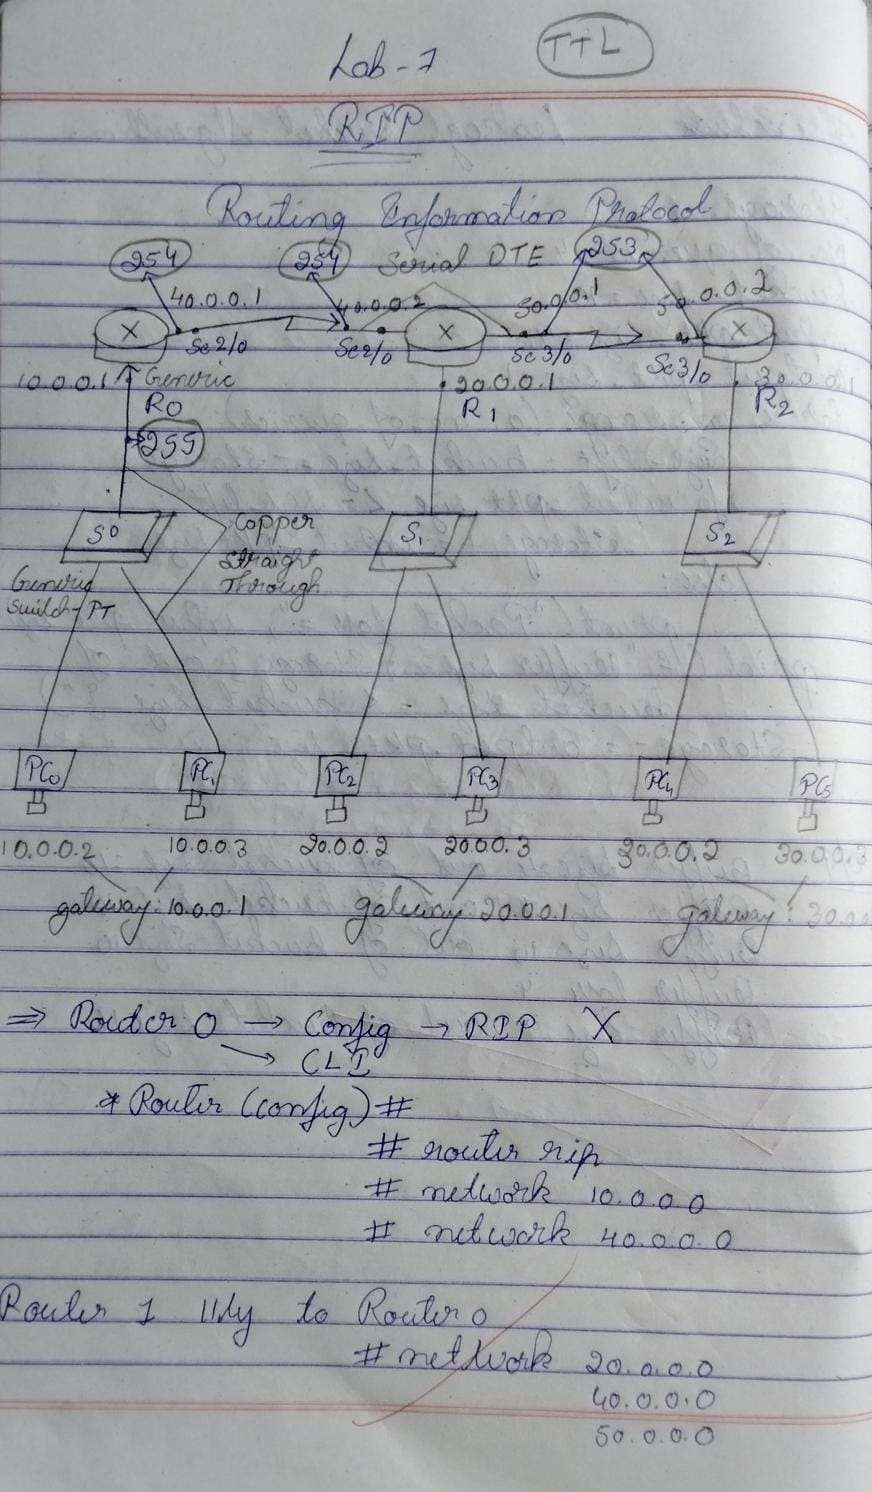 TTL
Lab-7
RIP
Routing Information Protocol
254 254 Serial DTE 253
40.0.0.1 40.0.0.2 50.0.0.1 50.0.0.2
X X X
Se2/0 Se2/0 Se3/0 Se3/0
10.0.0.1 Generic 20.0.0.1 30.0.0.1
R0 R1 R2
255
S0 Copper S1 S2
Straight
Through
Generic
Switch-PT
PC0 PC1 PC2 PC3 PC4 PC5
10.0.0.2 10.0.0.3 20.0.0.2 20.0.0.3 30.0.0.2 30.0.0.3
gateway: 10.0.0.1 gateway: 20.0.0.1 gateway: 30.0.
⇒ Router 0 → Config → RIP X
→ CLI
* Router (config)#
# router rip
# network 10.0.0.0
# network 40.0.0.0
Router 1 llly to Router 0
# network 20.0.0.0
40.0.0.0
50.0.0.0